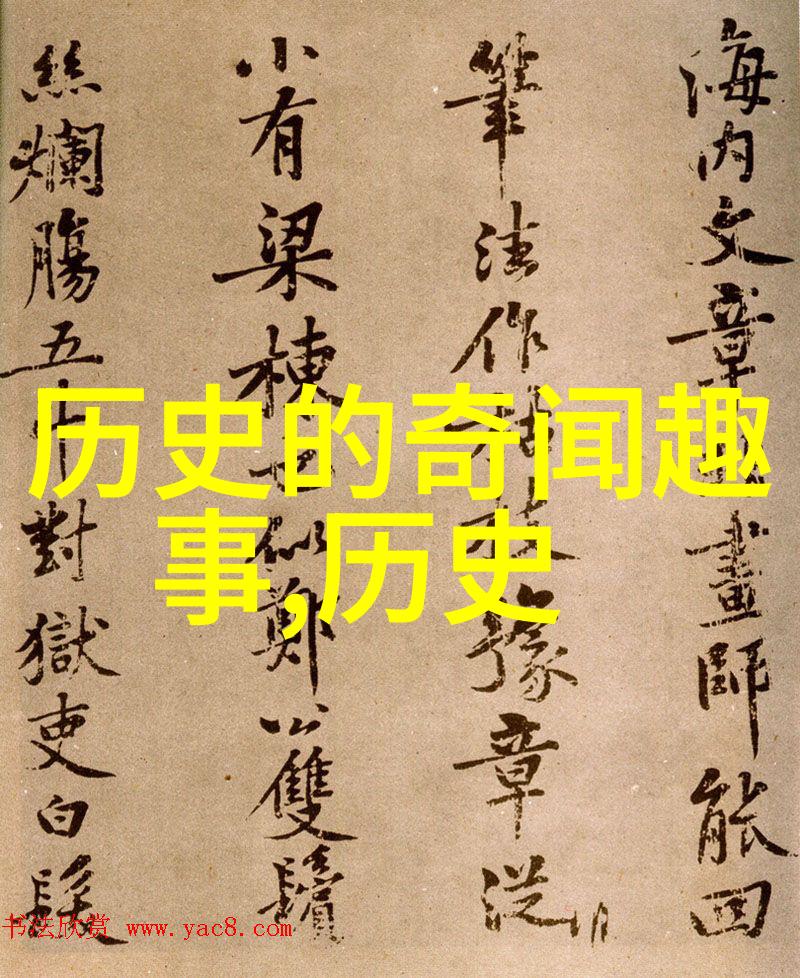 海内文章畫師能回
筆法作枯枝豫章從
小有梁棟也似鄭公雙鬢
絲爛腸五十對獄吏白髮
历史的奇闻趣
事,历史
书法欣赏 www.yac8.com